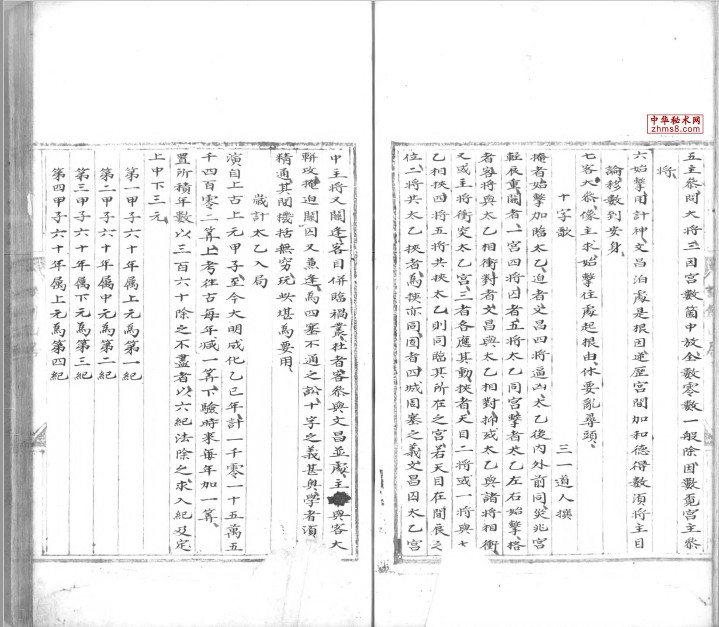 五主叅問大將三因宮數箇中放全數零數一般除因數覓宮主叅
將
六始擊用計神文昌泊處是根因逆歷宮間加和德得數須將主目
論移數到安身
七客大叅像主求始擊住處起根由休要亂尋頭
十字歌 三一道人撰
掩者始擊加臨太乙迫者文昌四將逼凶太乙後內外前同災兆宮
輕辰重關者一宮四將囚者五將太乙同宮擊者太乙左右始擊格
者客將與太乙相衝對者文昌與太乙相對掃或太乙與諸將相衝
又或主將衝突太乙宮三者各應其動挾者天目二將或一將與七
乙相挾四將五將共挾太乙則同臨其所在之宮若天目在間辰之
位二將共太乙挾者為挾亦同圍者四城周塞之義文昌囚太乙宮
中主將又關逢客目併臨禍叢杜者客叅與文昌並處主與客大
斬攻掩迫關囚又兼逢為四塞不通之訟十字之義甚奥學者須
精通其間機括無穷玩此堪為要用
嵗計太乙入局
演自上古上元甲子至今大明成化乙巳年計一千零一十五萬五
千四百零二筭上考往古每年減一筭下驗時來每年加一筭
置所積年數以三百六十除之不盡者以六紀法除之求入紀及定
上中下三元
第一甲子六十年属上元為第一紀
第二甲子六十年属中元為第二紀
第三甲子六十年属下元為第三紀
第四甲子六十年属上元為第四紀
中华秘术网
zhms8.com